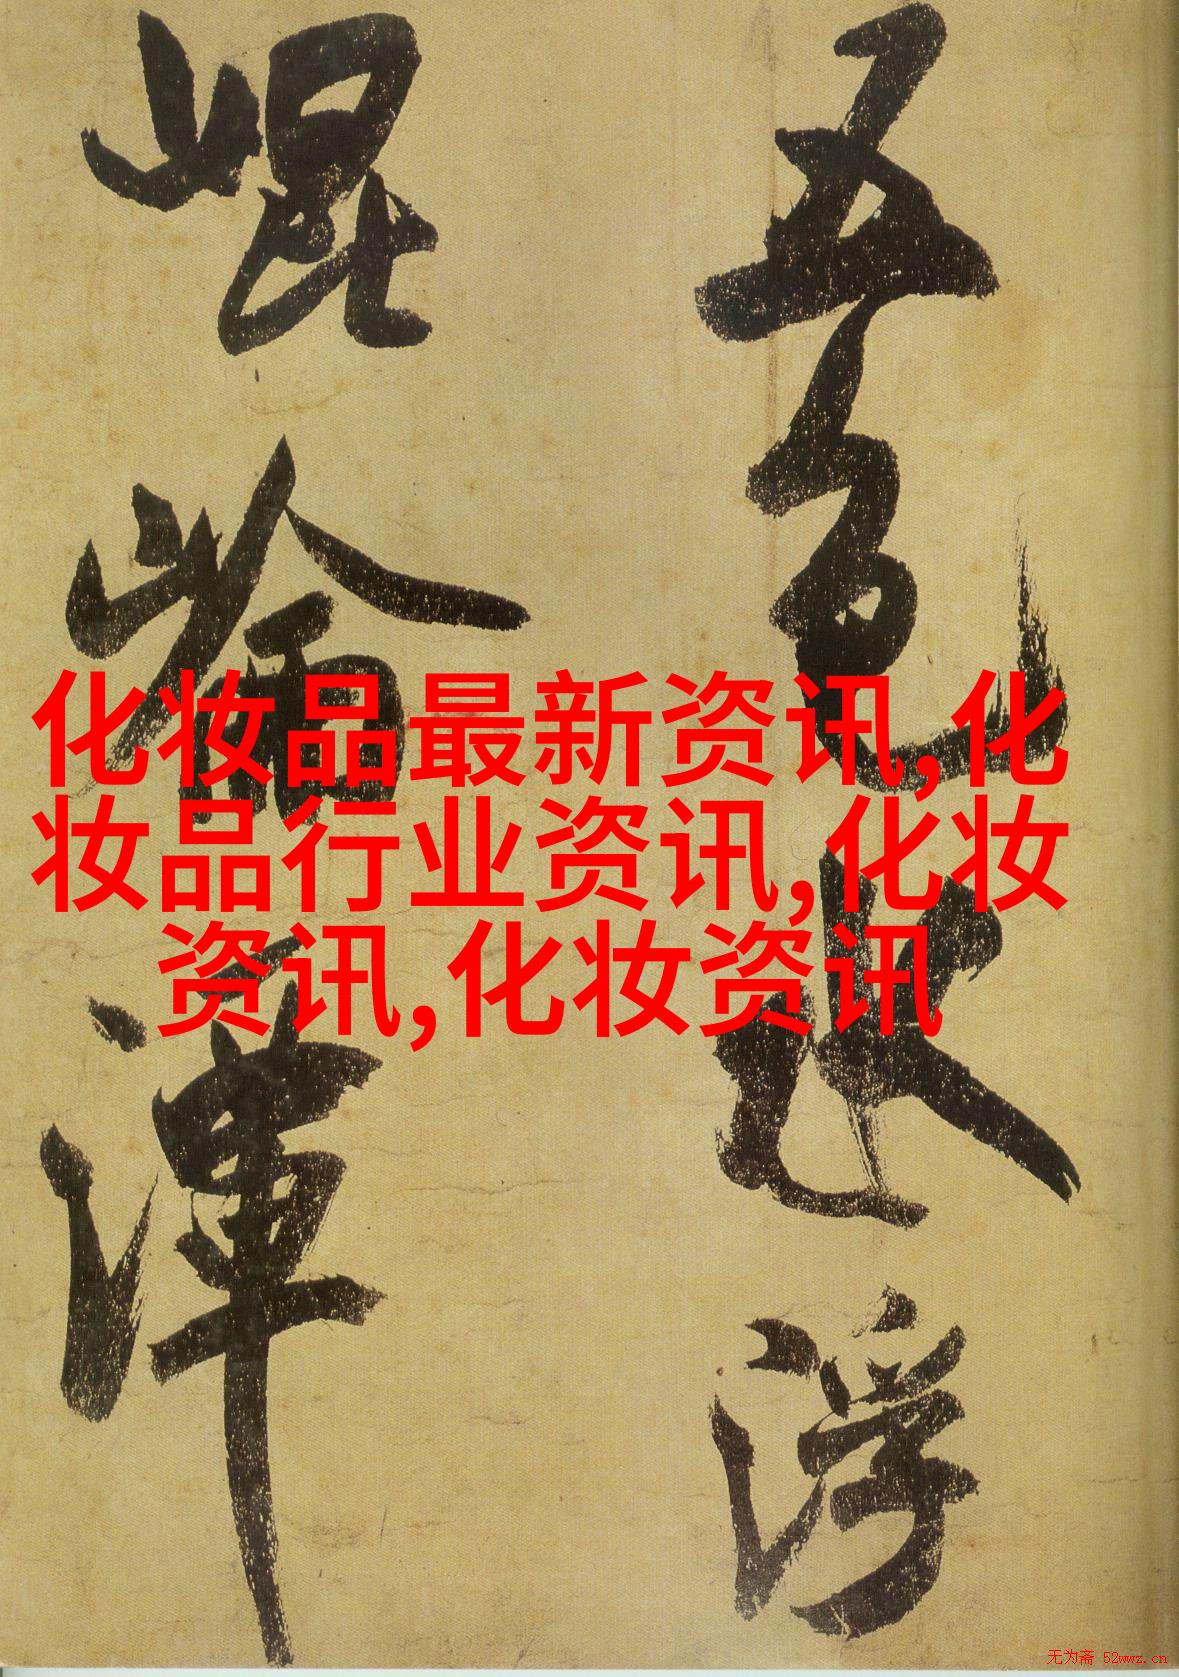 五色水浮
崐崘潭
化妆品最新资讯,化
妆品行业资讯,化妆
资讯,化妆资讯
无为斋 52wwz.cn